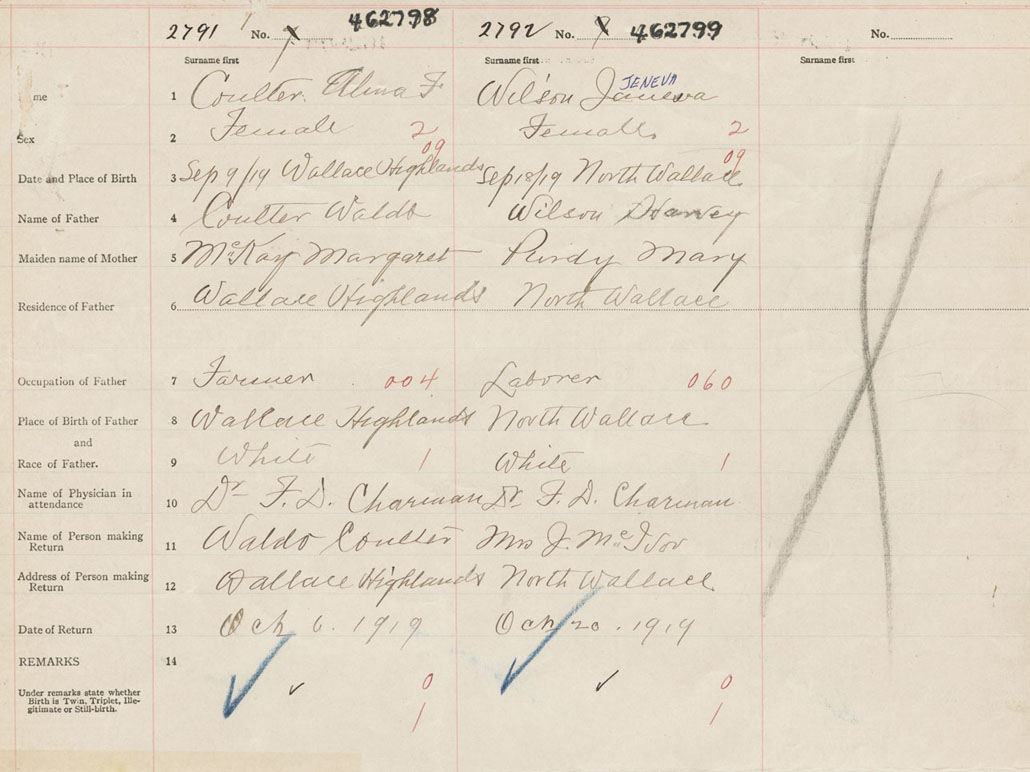 2791 No. 462798 2792 No. 462799 No.
Surname first Surname first Surname first
me 1 Coulter Alma F Wilson Janeva JENEVA
Sex 2 Female 2 Female 2
09 09
Date and Place of Birth 3 Sep 9/19 Wallace Highlands Sep 18/19 North Wallace
Name of Father 4 Coulter Waldo Wilson Harvey
Maiden name of Mother 5 McKay Margaret Purdy Mary
Residence of Father 6 Wallace Highlands North Wallace
Occupation of Father 7 Farmer 004 Laborer 060
Place of Birth of Father 8 Wallace Highlands North Wallace
and
Race of Father. 9 White 1 White 1
Name of Physician in
attendance 10 Dr F. D. Charman Dr F. D. Charman
Name of Person making
Return 11 Waldo Coulter Mrs J. McIvor
Address of Person making
Return 12 Wallace Highlands North Wallace
Date of Return 13 Oct 6. 1919 Oct 20. 1919
REMARKS 14
Under remarks state whether
Birth is Twin, Triplet, Ille-
gitimate or Still-birth.
0 0
1 1